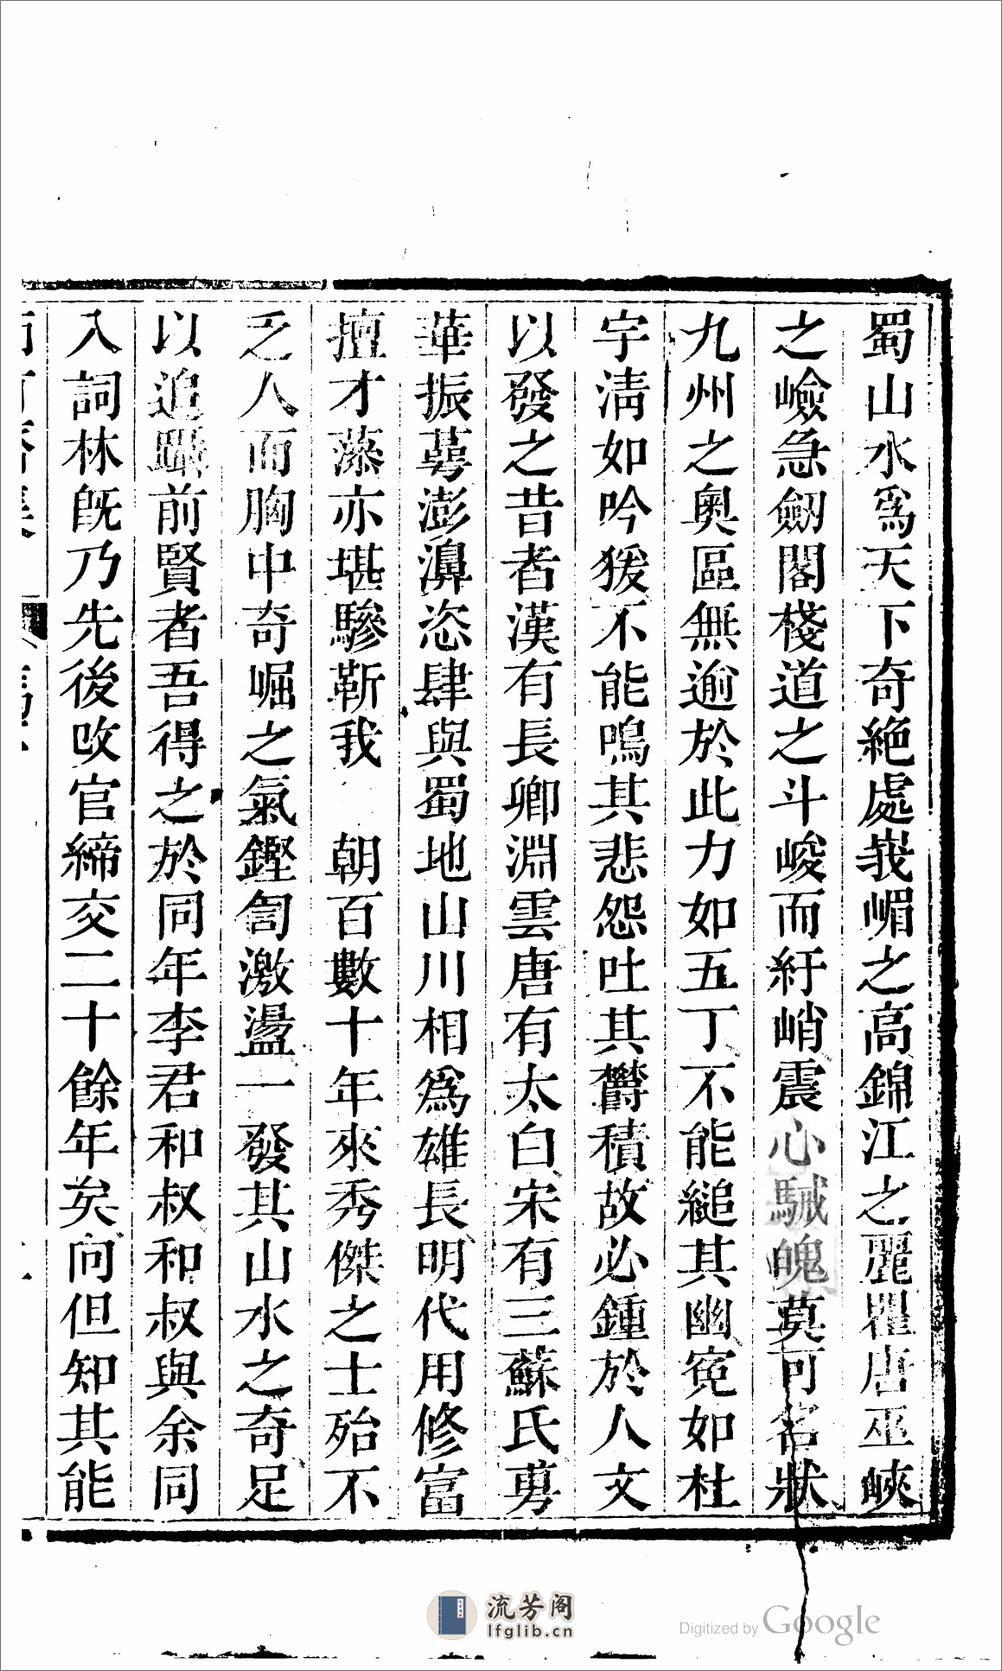 蜀山水爲天下奇絶處峩嵋之高錦江之麗瞿唐巫峽
之嶮急劒閣棧道之斗峻而紆峭震心駴魄莫可名狀
九州之奧區無逾於此力如五丁不能縋其幽寃如杜
宇淸如吟猨不能鳴其悲怨吐其欝積故必鍾於人文
以發之昔者漢有長卿淵雲唐有太白宋有三蘇氏旉
華振蕚澎濞恣肆與蜀地山川相爲雄長明代用修富
擅才藻亦堪驂靳我 朝百數十年來秀傑之士殆不
乏人而胸中奇崛之氣鏗訇激盪一發其山水之奇足
以追躡前賢者吾得之於同年李君和叔和叔與余同
入詞林旣乃先後改官締交二十餘年矣向但知其能
流芳阁
lfglib.cn
Digitized by Google